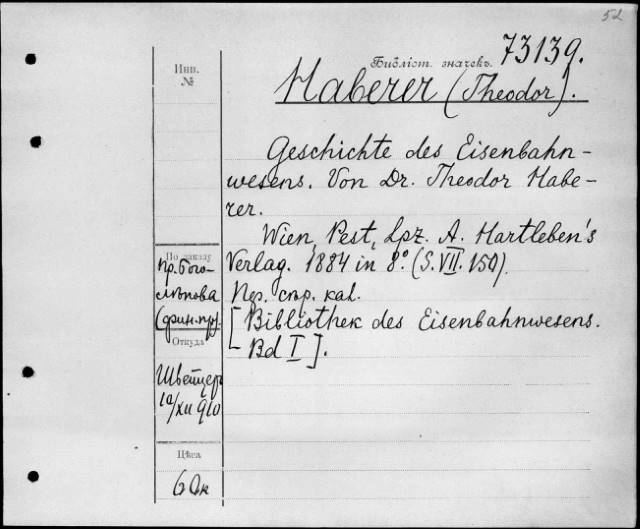 52
Инв.
№
Библіот. значекъ. 73139.
Haberer (Theodor).
Geschichte des Eisenbahn-
wesens. Von Dr. Theodor Habe-
rer.
Wien, Pest, Lpz. A. Hartleben's
Verlag. 1884 in 8.° (S. VII. 150).
Пер. стр. kal.
[Bibliothek des Eisenbahnwesens.
Bd I].
По заказу
пр. Бого-
лѣпова
(фин. пр).
Откуда
Швейцер
12/XII 910
Цѣна
60к